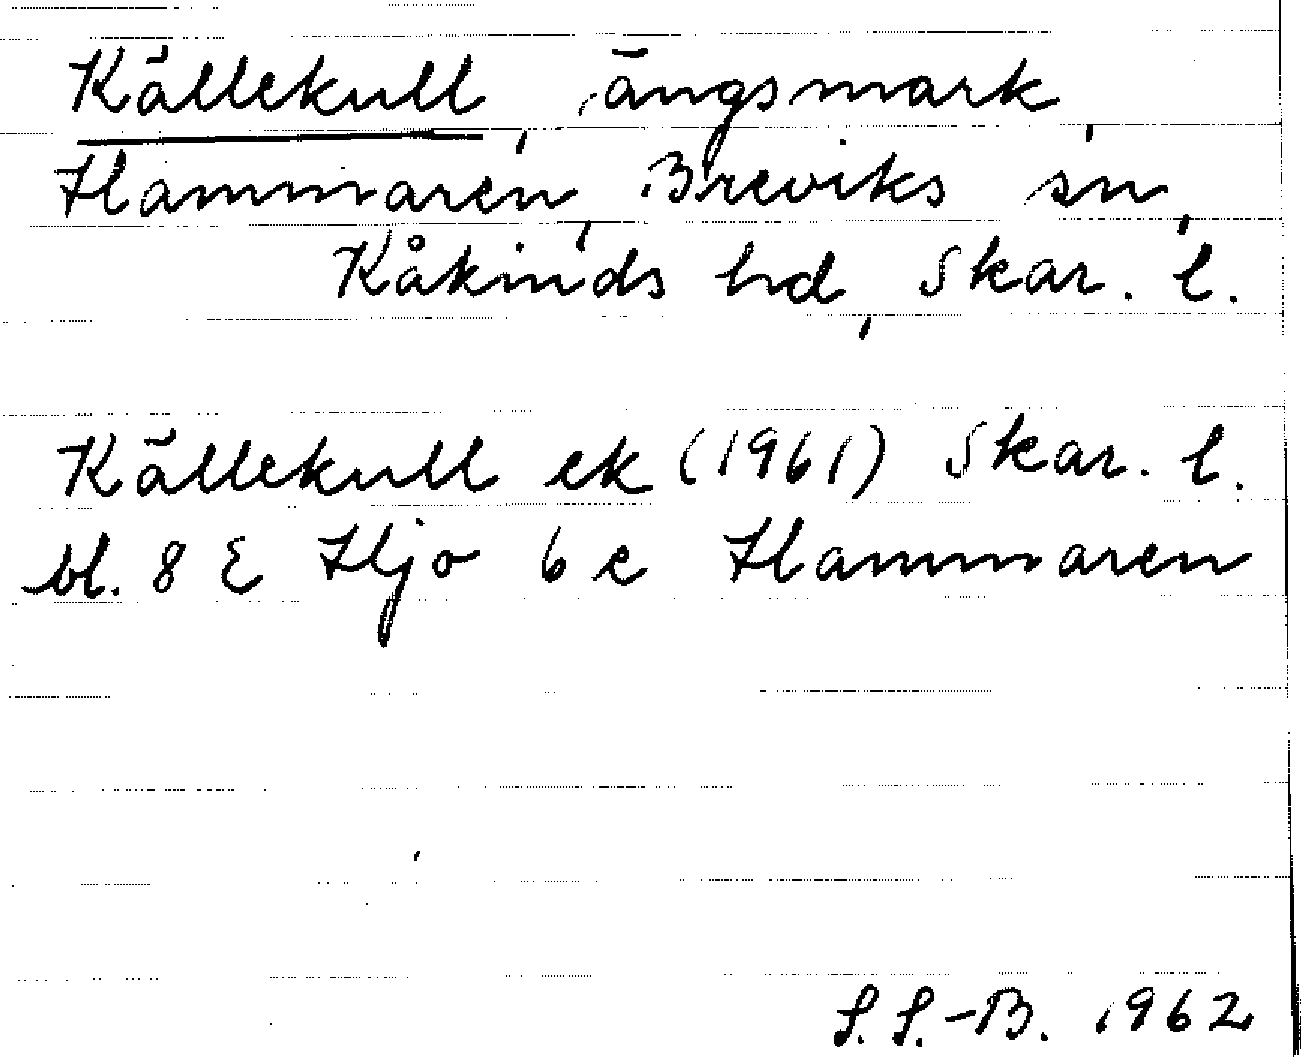 Källekull, ängsmark,
Hammaren, Breviks sn,
Kåkinds hd, Skar. l.
Källekull ek (1961) Skar. l.
bl. 8 E Hjo 6 e Hammaren
S. S.-B. 1962